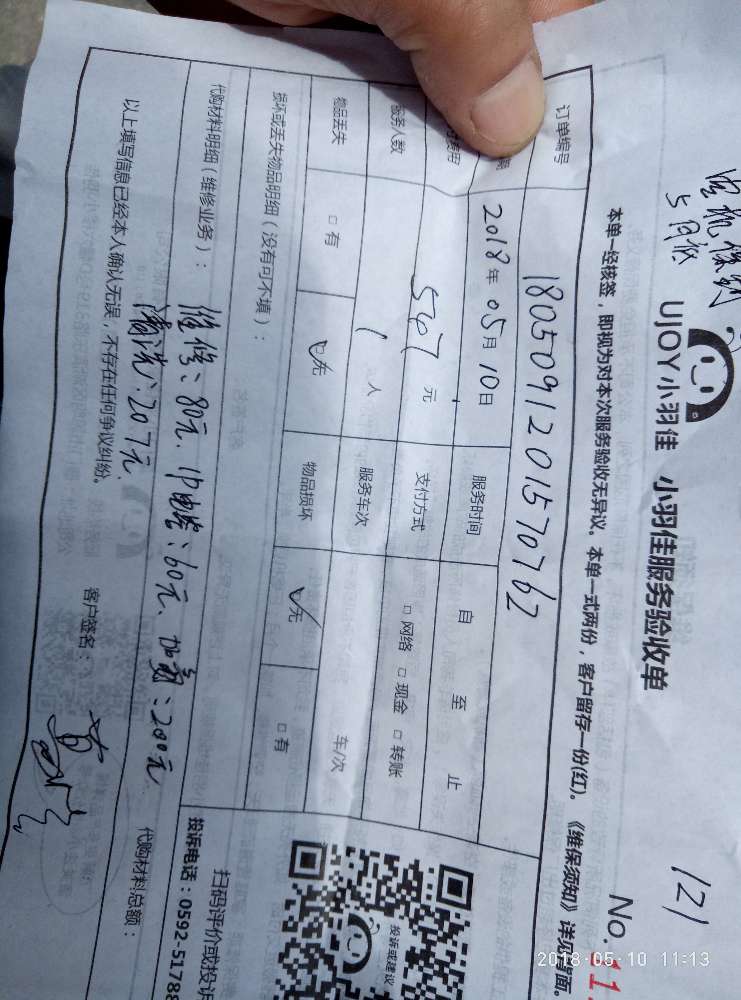 UJOY小羽佳 小羽佳服务验收单
No. 11
121
本单一经核签，即视为对本次服务验收无异议。本单一式两份，客户留存一份(红)。《维保须知》详见背面。
订单编号 1805091201570762
2018年05月10日 服务时间 自 至 止
费用 547元 支付方式 □网络 □现金 □转账
服务人数 1人 服务车次 车/次
物品丢失 □有 ☑无 物品损坏 ☑无 □有
损坏或丢失物品明细（没有可不填）：
代购材料明细（维修业务）：维修：80元、电容：60元、加氟：200元
清洗：207元、
代购材料总额：
以上填写信息已经本人确认无误，不存在任何争议纠纷。
客户签名：
投诉或建议
扫码评价或投诉
投诉电话：0592-5178
2018-05-10 11:13